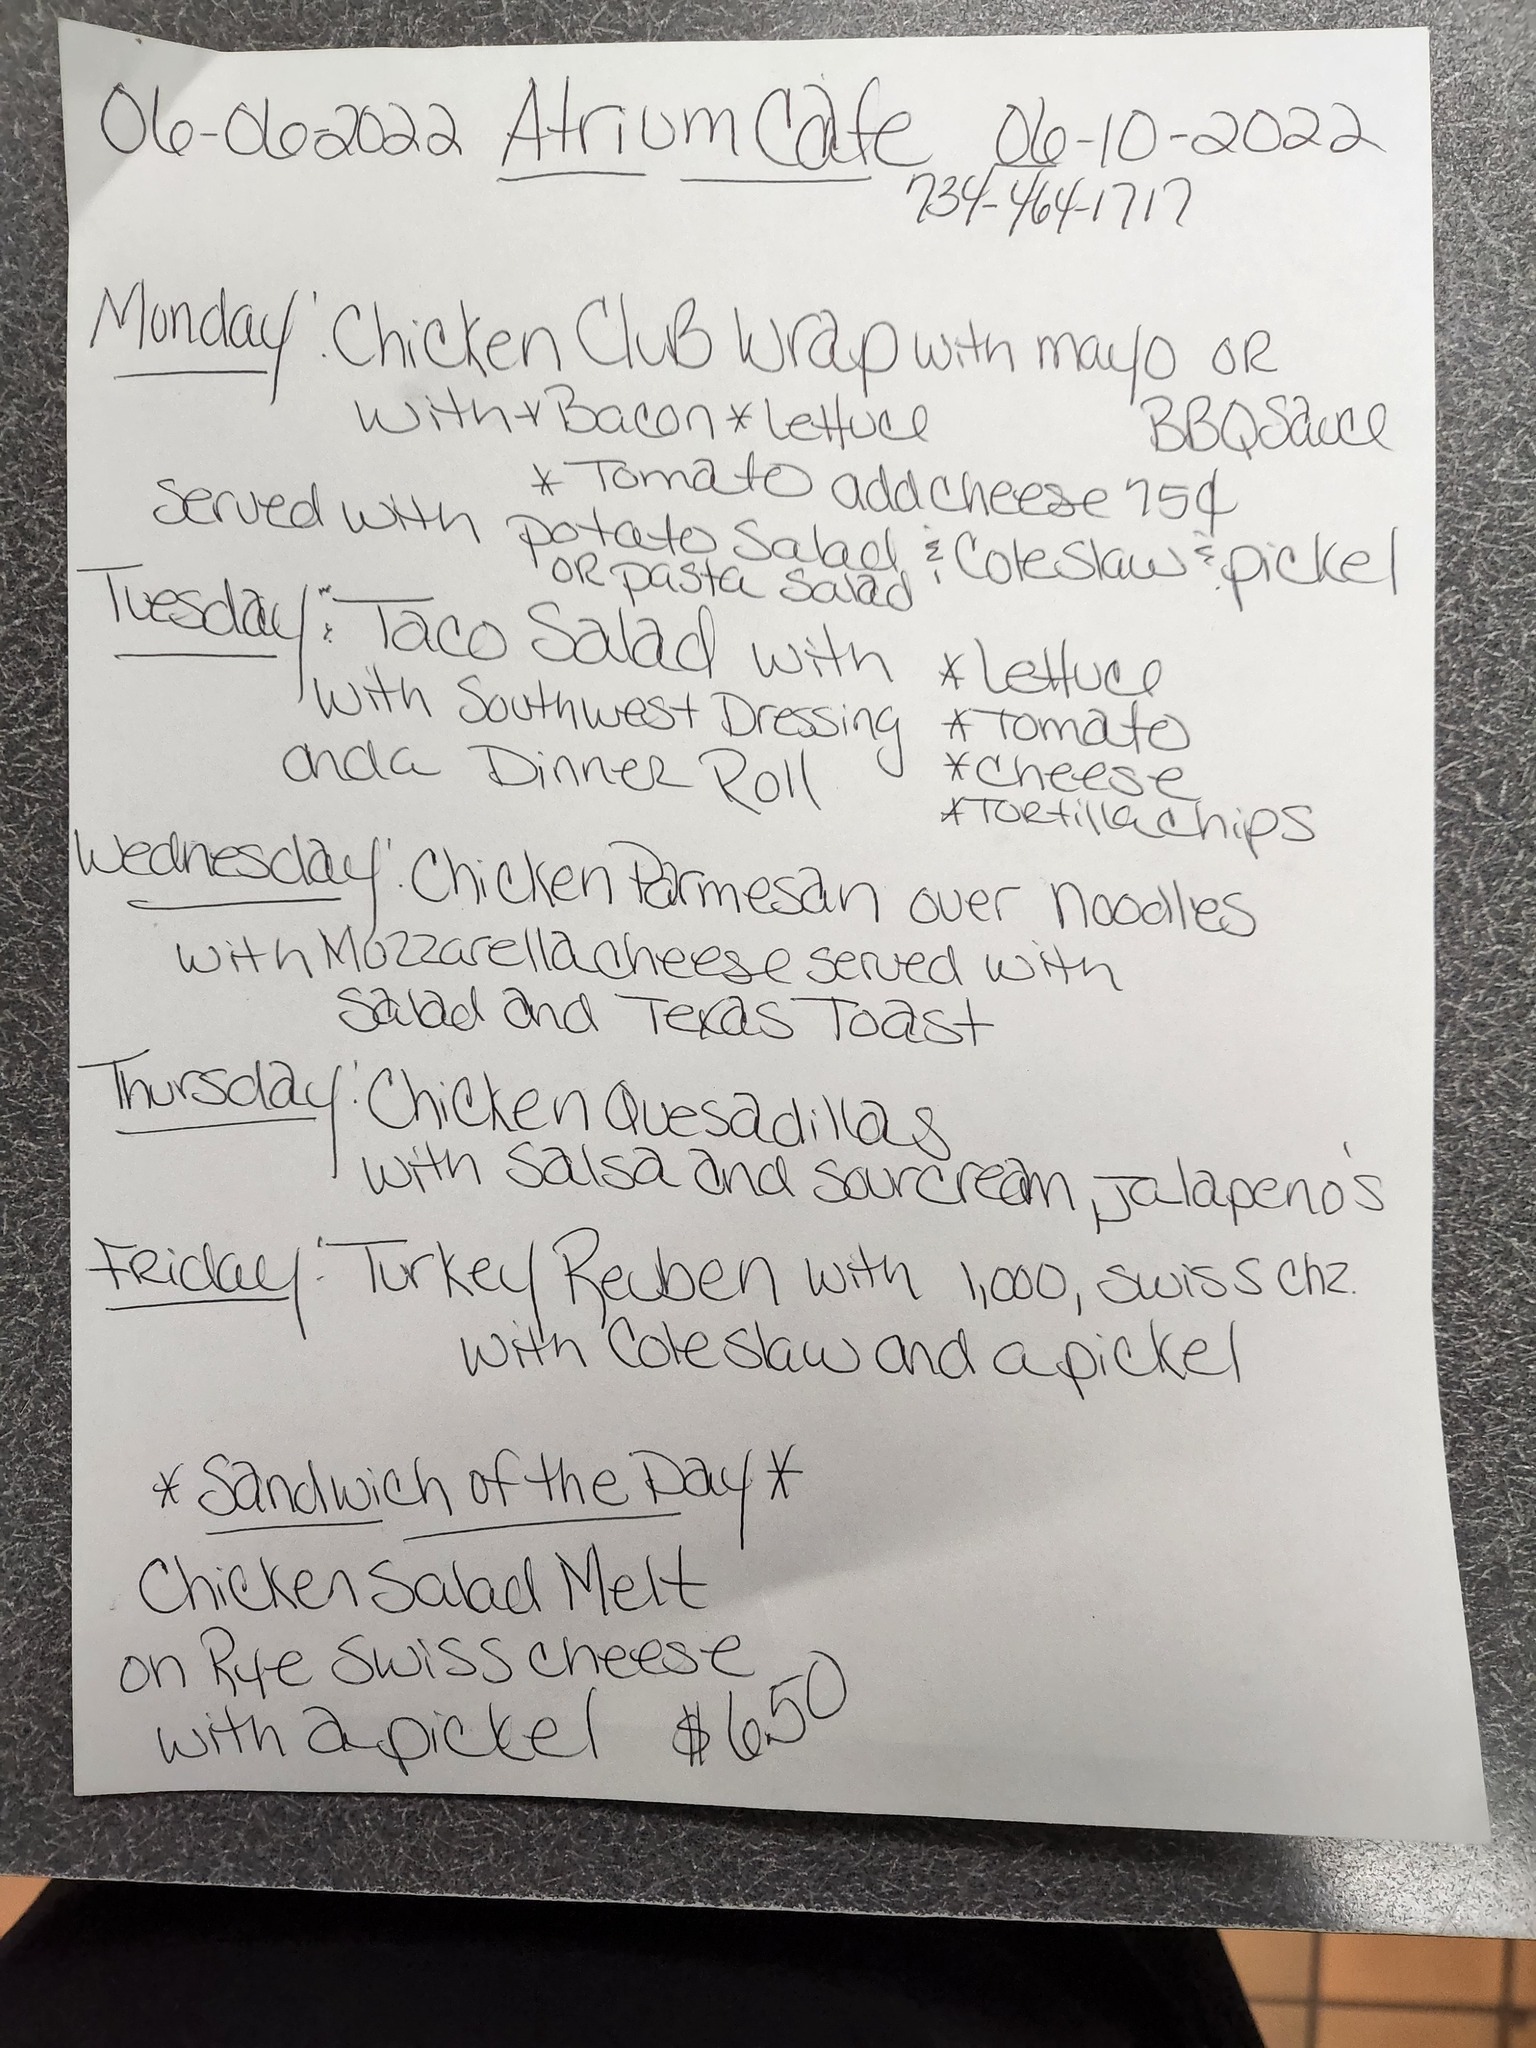 06-06-2022 Atrium Cafe 06-10-2022
734-464-1717
Monday: Chicken Club Wrap with mayo OR
with * Bacon * Lettuce BBQ Sauce
* Tomato add cheese 75¢
Served with potato Salad & Coleslaw & pickel
OR pasta salad
Tuesday: Taco Salad with * Lettuce
with Southwest Dressing * Tomato
and a Dinner Roll * Cheese
* Tortilla chips
Wednesday: Chicken Parmesan over Noodles
with Mozzarella cheese served with
Salad and Texas Toast
Thursday: Chicken Quesadillas
with Salsa and sour cream, Jalapeno's
Friday: Turkey Reuben with 1,000, swiss chz.
with Coleslaw and a pickel
* Sandwich of the Day *
Chicken Salad Melt
on Rye Swiss cheese
with a pickel $6.50